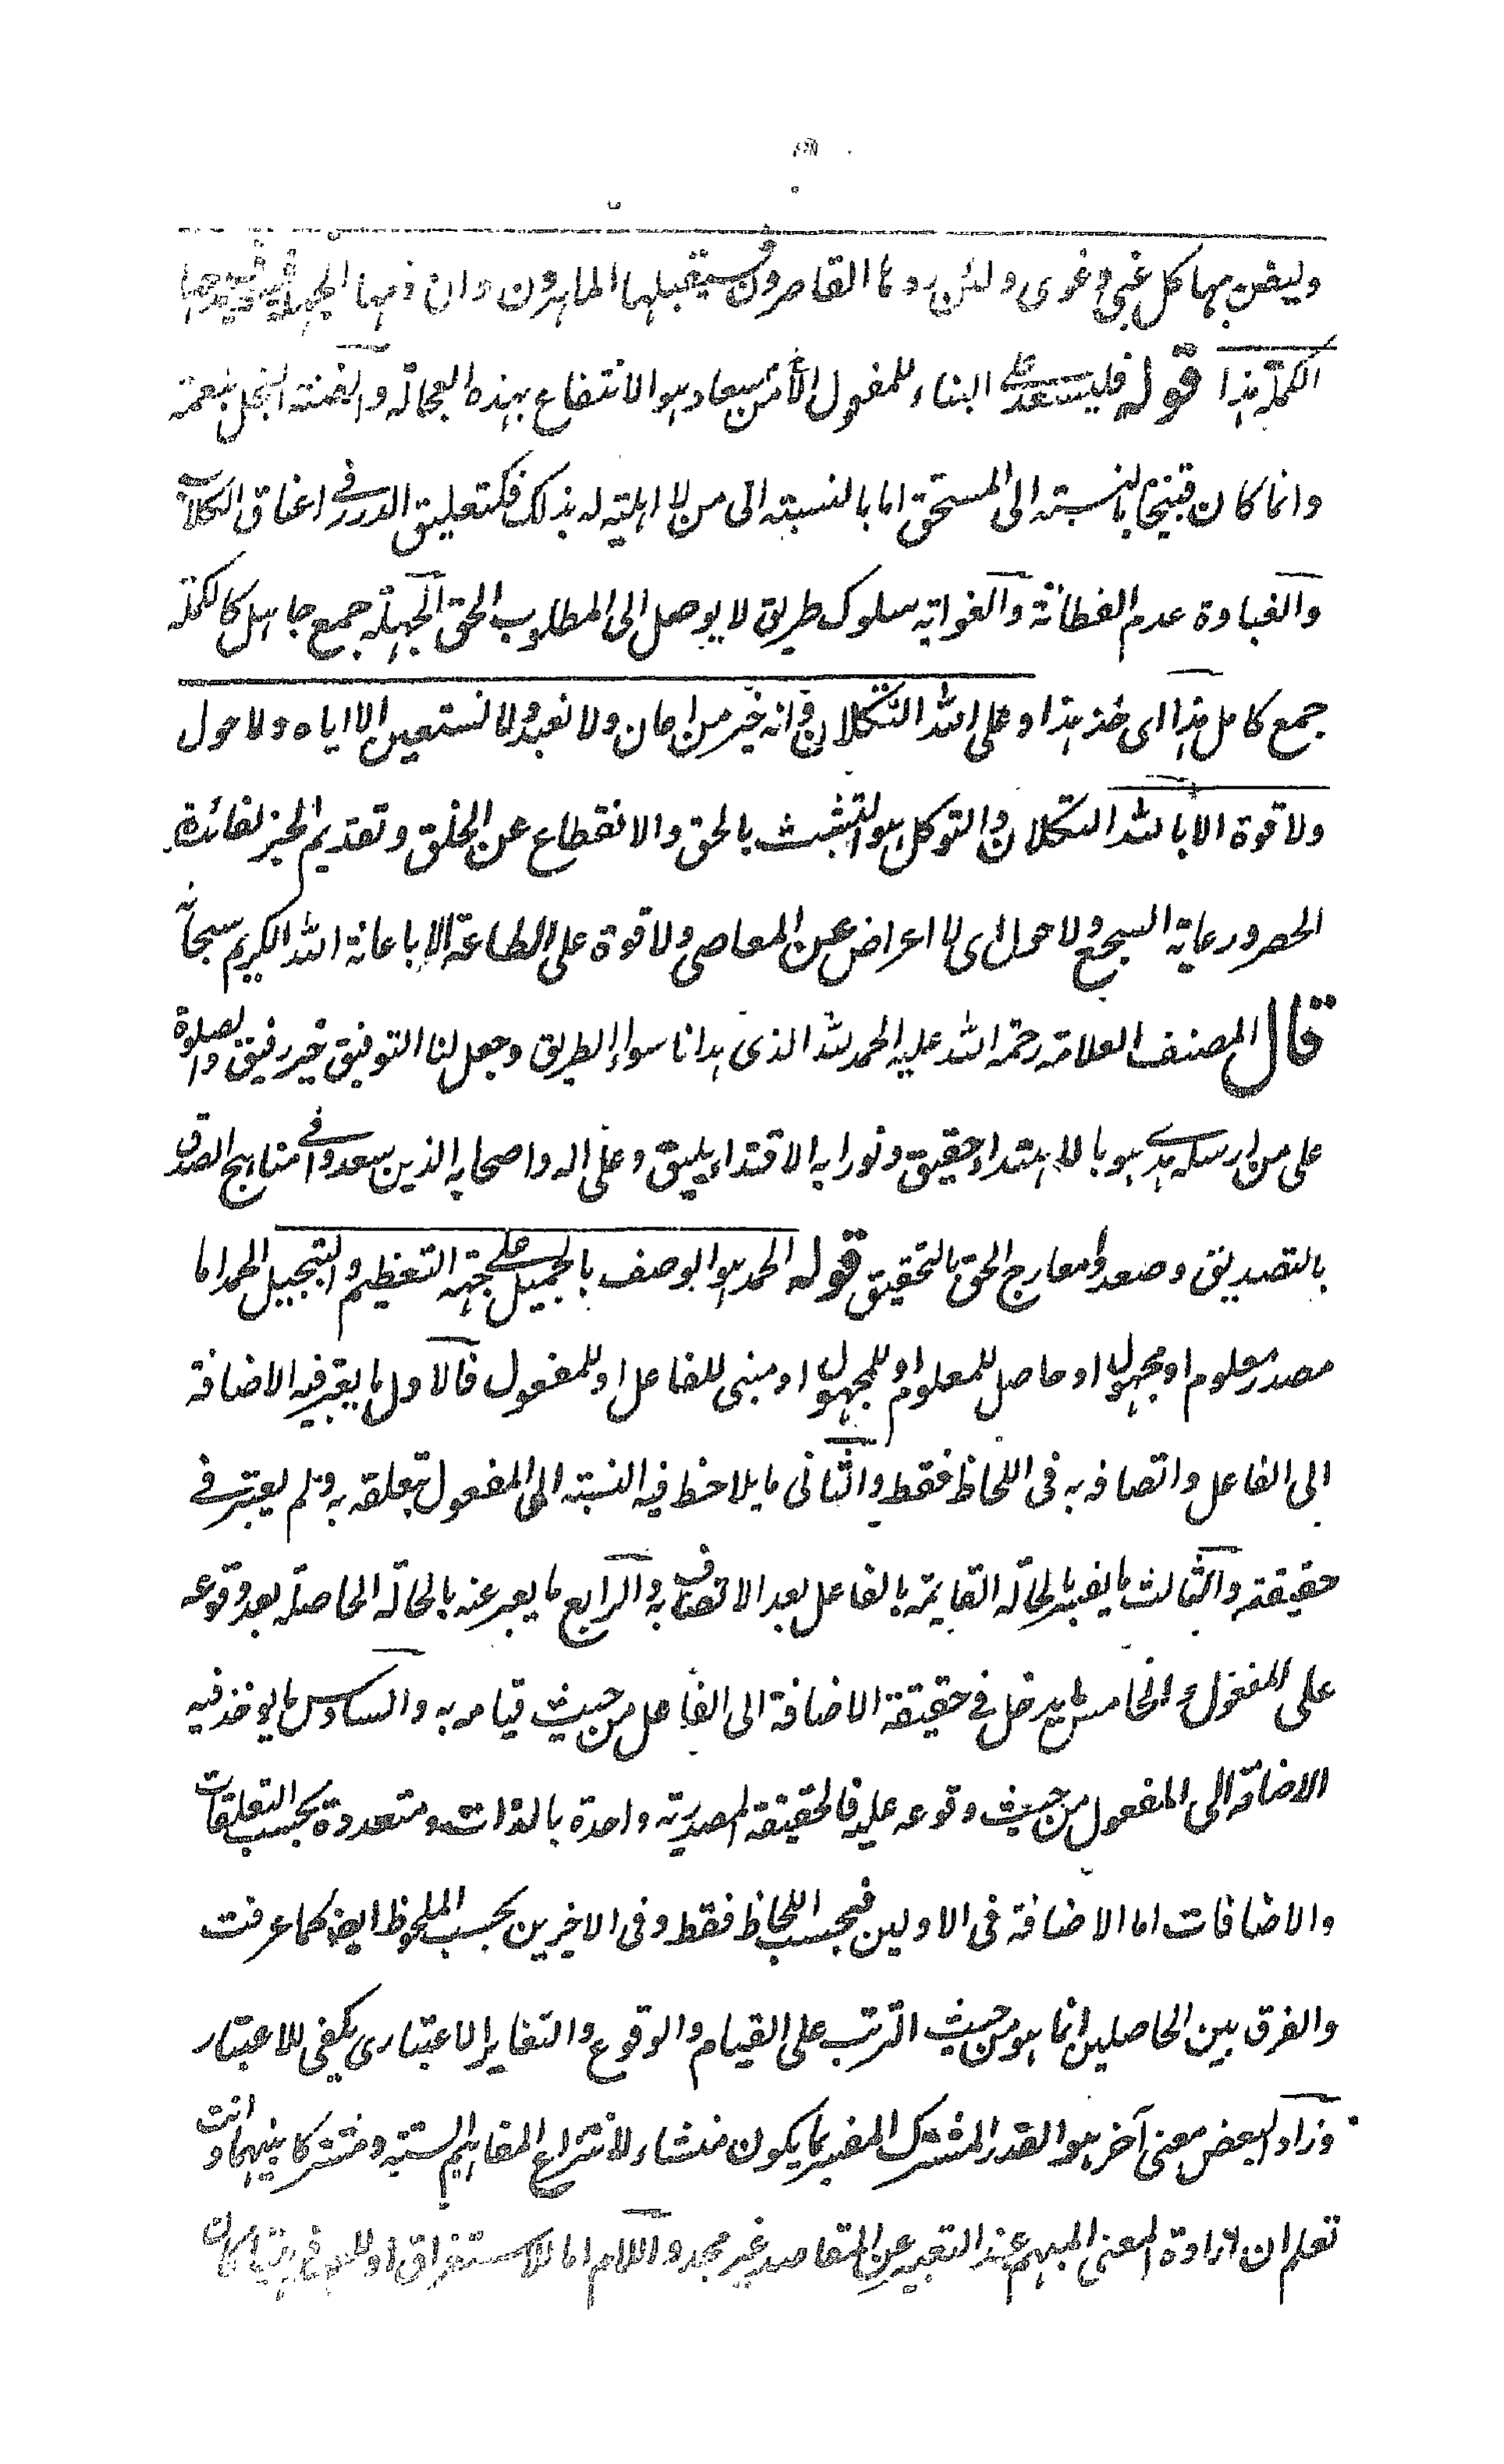 وليضن بها كل غبي وغوى ولئن ردها القاصرون فسيقبلها الماهرون وان ذمها الجهلة
الكملة هذا قوله فليسعد على البناء للمفعول الأمن يعاد هو الانتفاع بهذه العجالة والضنة البخل بنعمة
وانما كان قبيحا بالنسبة الى المستحق اما بالنسبة الى من لا اهلية له بذلك فكتعليق الدرر فى اعناق الكلاب
والغباوة عدم الفطانة والغواية سلوك طريق لا يوصل الى المطلوب الحق الجهلة جمع جاهل كالكملة
جمع كامل هذا اى خذ هذا وعلى الله التكلان وانه خير من اعان ولا نعبد ولا نستعين الا اياه ولا حول
ولا قوة الا بالله التكلان والتوكل هو التشبث بالحق والانقطاع عن الخلق وتقديم الخبر لفائدة
الحصر ورعاية السجع ولا حول اى لا اعراض عن المعاصى ولا قوة على الطاعة الا باعانة الله الكريم سبحانه
قال المصنف العلامة رحمة الله عليه الحمد لله الذى هدانا سواء الطريق وجعل لنا التوفيق خير رفيق والصلوة
على من ارسله هدى هو بالاهتداء حقيق ونورا به الاقتداء يليق وعلى اله واصحابه الذين سعدوا فى مناهج الصدق
بالتصديق وصعدوا معارج الحق بالتحقيق قوله الحمد هو الوصف بالجميل على جهة التعظيم والتبجيل الحمد اما
مصدر معلوم او مجهول او حاصل للمعلوم او للمجهول او مبنى للفاعل او للمفعول فالاول ما يعتبر فيه الاضافة
الى الفاعل واتصافه به فى اللحاظ فقط والثانى ما يلاحظ فيه النسبة الى المفعول وتعلقه به ولم يعتبر فى
حقيقته والثالث ما يفسر بالحالة القايمة بالفاعل بعد الاتصاف به والرابع ما يعبر عنه بالحالة الحاصلة بعد وقوعه
على المفعول والخامس ما يدخل فى حقيقة الاضافة الى الفاعل من حيث قيامه به والسادس ما يوخذ فيه
الاضافة الى المفعول من حيث وقوعه عليه فالحقيقة المصدرية واحدة بالذات ومتعددة بحسب التعلقات
والاضافات اما الاضافة فى الاولين فبحسب اللحاظ فقط وفى الاخيرين بحسب الملحوظ ايضا كما عرفت
والفرق بين الحاصلين انما هو من حيث الترتب على القيام والوقوع والتغاير الاعتبارى يكفى للاعتبار
وزاد البعض معنى آخر هو القدر المشترك المفسر بما يكون منشاء لانتزاع المفاهيم الستة ومشتركا بينهما وانت
تعلم ان ارادة المعنى المبهم عند التعبير عن المقاصد غير مجد واللام اما للاستغراق او